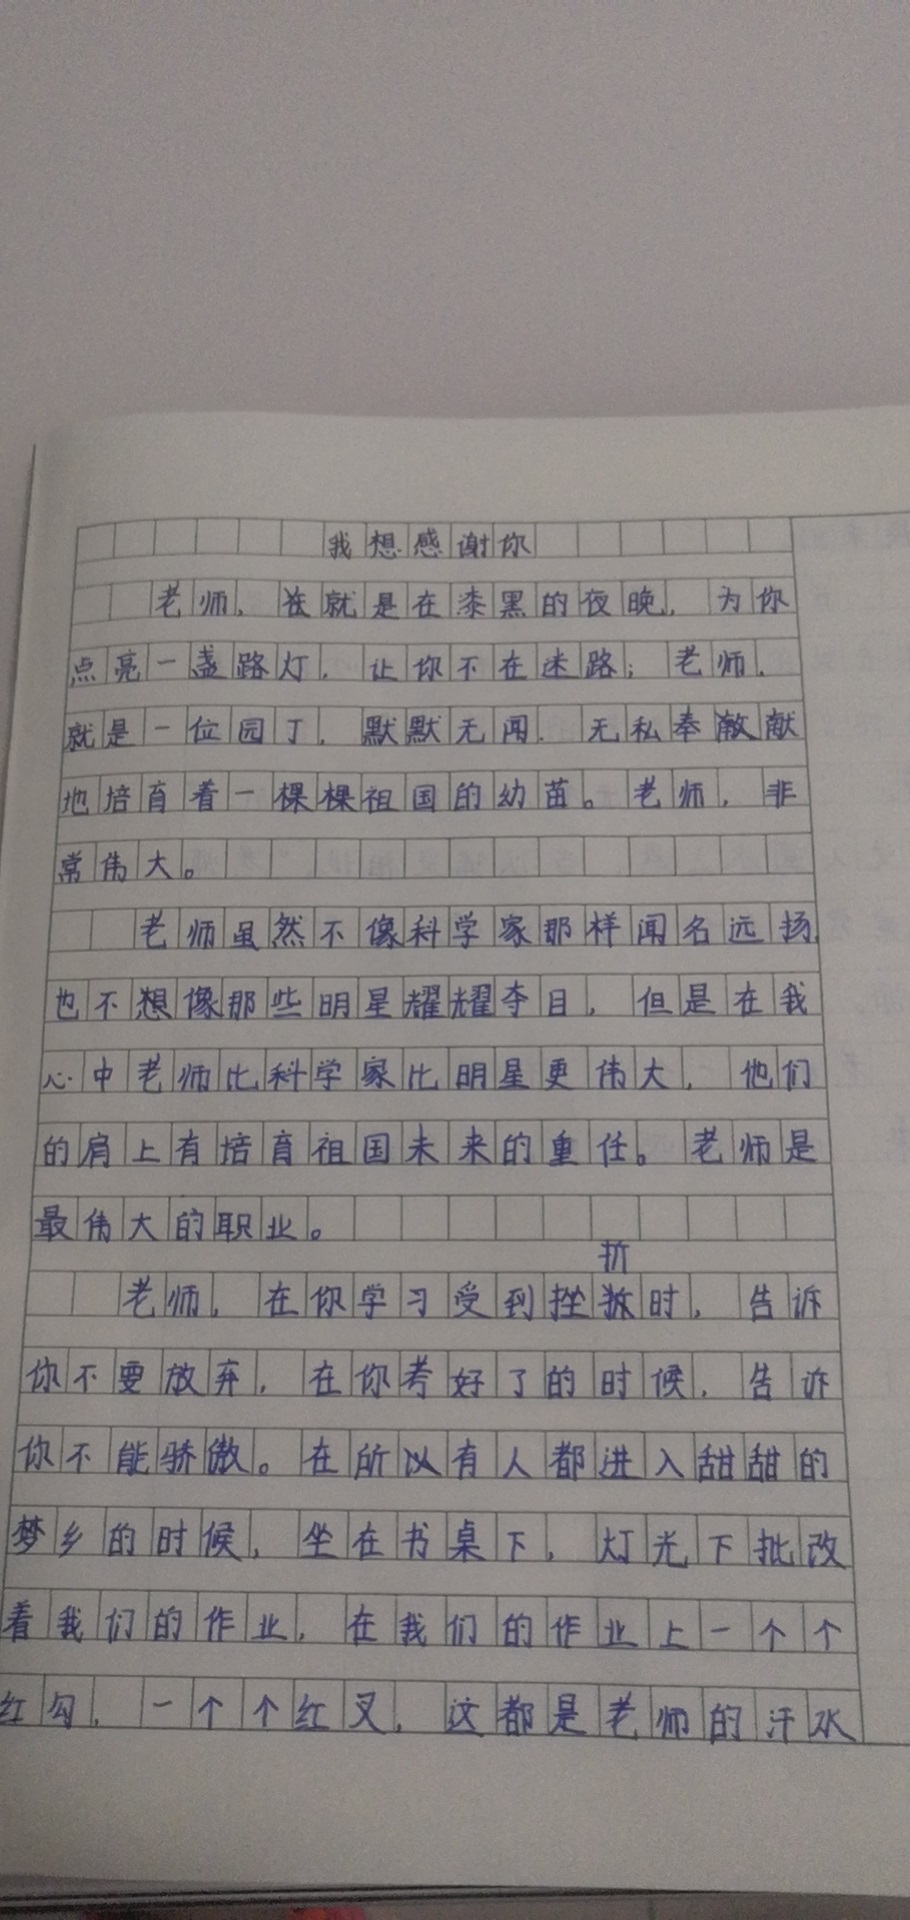 我想感谢你
老师，在就是在漆黑的夜晚，为你
点亮一盏路灯，让你不在迷路；老师，
就是一位园丁，默默无闻，无私奉献
地培育着一棵棵祖国的幼苗。老师，非
常伟大。
老师虽然不像科学家那样闻名远扬，
也不想像那些明星耀耀夺目，但是在我
心中老师比科学家比明星更伟大，他们
的肩上有培育祖国未来的重任。老师是
最伟大的职业。
折
老师，在你学习受到挫时，告诉
你不要放弃，在你考好了的时候，告诉
你不能骄傲。在所以有人都进入甜甜的
梦乡的时候，坐在书桌下，灯光下批改
着我们的作业，在我们的作业上一个个
红勾，一个个红叉，这都是老师的汗水